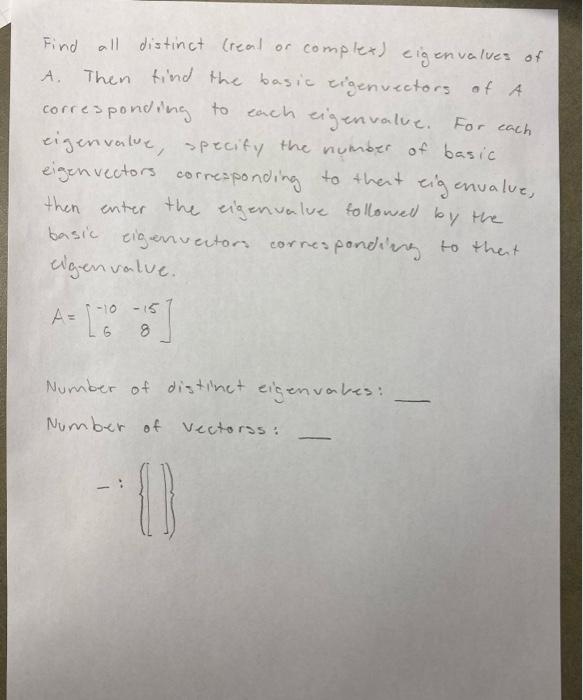 Find all distinct (real or complex) eigenvalues of
A. Then find the basic eigenvectors of A
corresponding to each eigenvalue. For each
eigenvalue, specify the number of basic
eigenvectors corresponding to that eigenvalue,
then enter the eigenvalue followed by the
basic eigenvectors corresponding to that
eigenvalue.
A = [-10 -15
6 8]
Number of distinct eigenvalues: __
Number of Vectorss: __
_ : {[ ]}